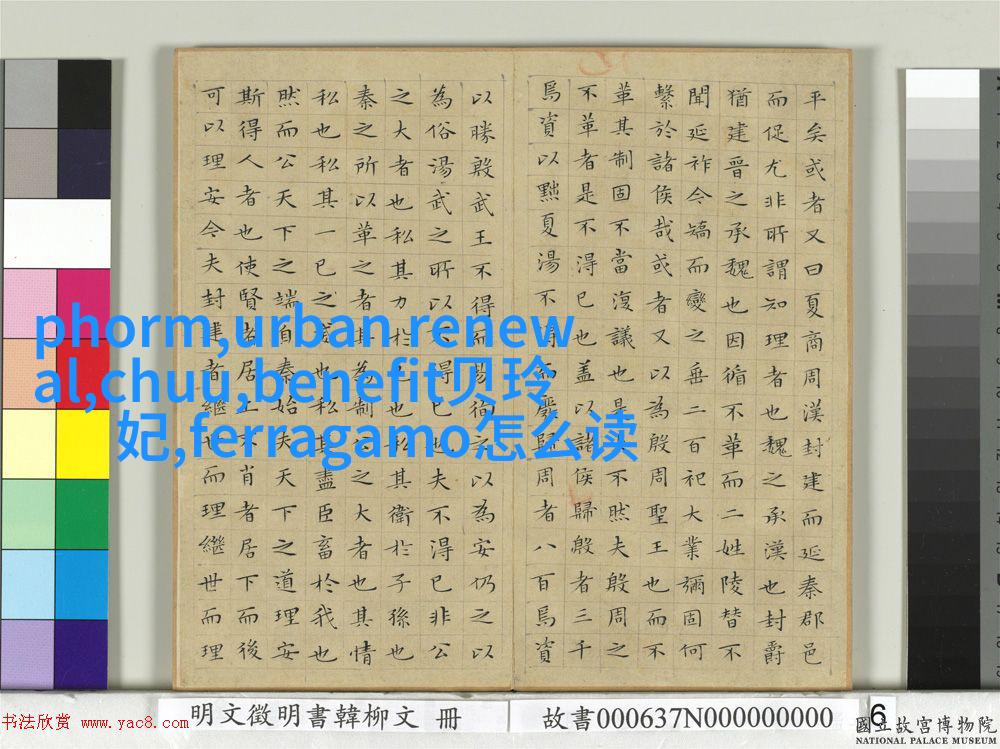 平矣或者又曰夏商周漢封建而延秦郡邑
而促尤非所謂知理者也魏之承漢也封爵
猶建晉之承魏也因循不革而二姓陵替不
聞延祚今矯而變之垂二百祀大業彌固何
繫於諸侯哉或者又以為殷周聖王也而不
革其制固不當復議也是不然夫殷周之
不革者是不得已也蓋以諸侯歸殷者三千
焉資以黜夏湯不得而廢歸周者八百焉資
以勝殷武王不得而易徇之以為安仍之以
為俗湯武之所以不得已也夫不得已非公
之大者也私其力於己也私其衛於子孫也
秦之所以革之者其為制公之大者也其情
私也私其一己之威也私其盡臣畜於我也
然而公天下之端自秦始夫天下之道理安
斯得人者也使賢者居上不肖者居下而後
可以理安今夫封建者繼世而理繼世而理
phorm,urban renew
al,chuu,benefit贝玲
妃,ferragamo怎么读
明文徵明書韓柳文 冊
故書000637N000000000
6
书法欣赏 www.yac8.com
國立故宮博物院
NATIONAL PALACE MUSEUM